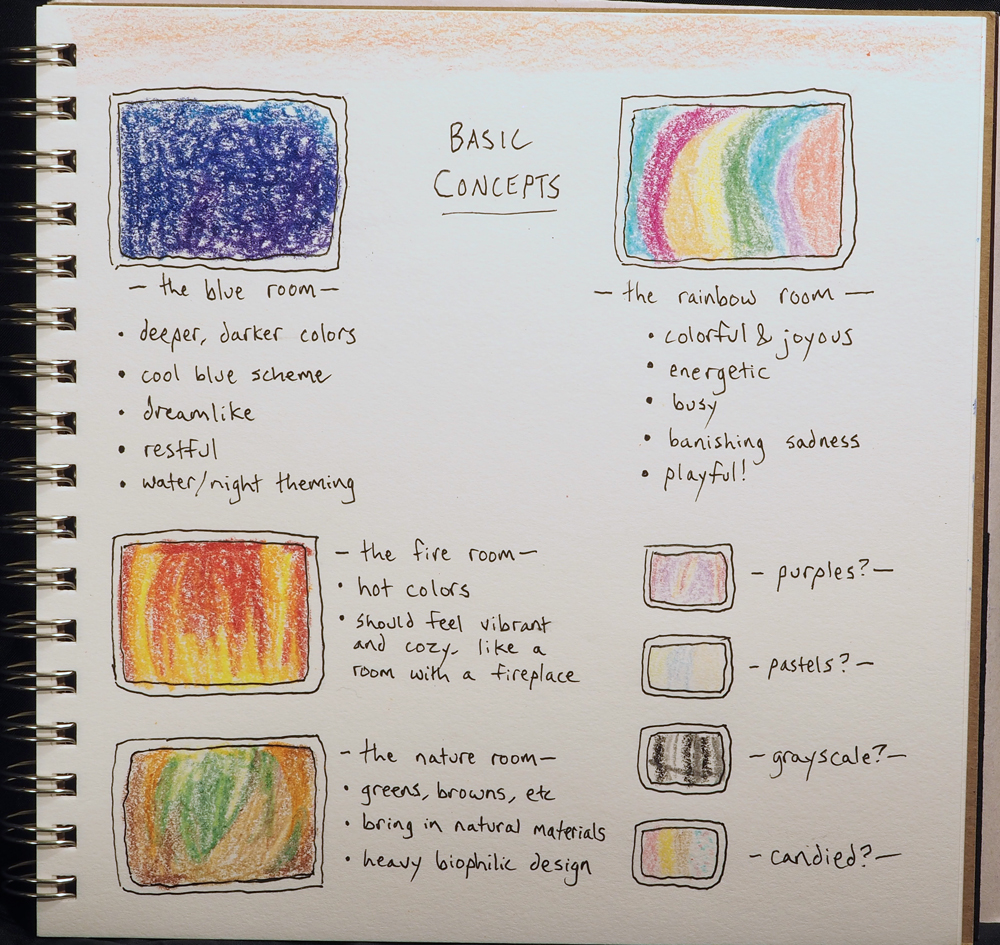 BASIC
CONCEPTS
— the blue room —
• deeper, darker colors
• cool blue scheme
• dreamlike
• restful
• water/night theming
— the rainbow room —
• colorful & joyous
• energetic
• busy
• banishing sadness
• playful!
— the fire room —
• hot colors
• should feel vibrant
and cozy, like a
room with a fireplace
— the nature room —
• greens, browns, etc
• bring in natural materials
• heavy biophilic design
— purples? —
— pastels? —
— grayscale? —
— candied? —